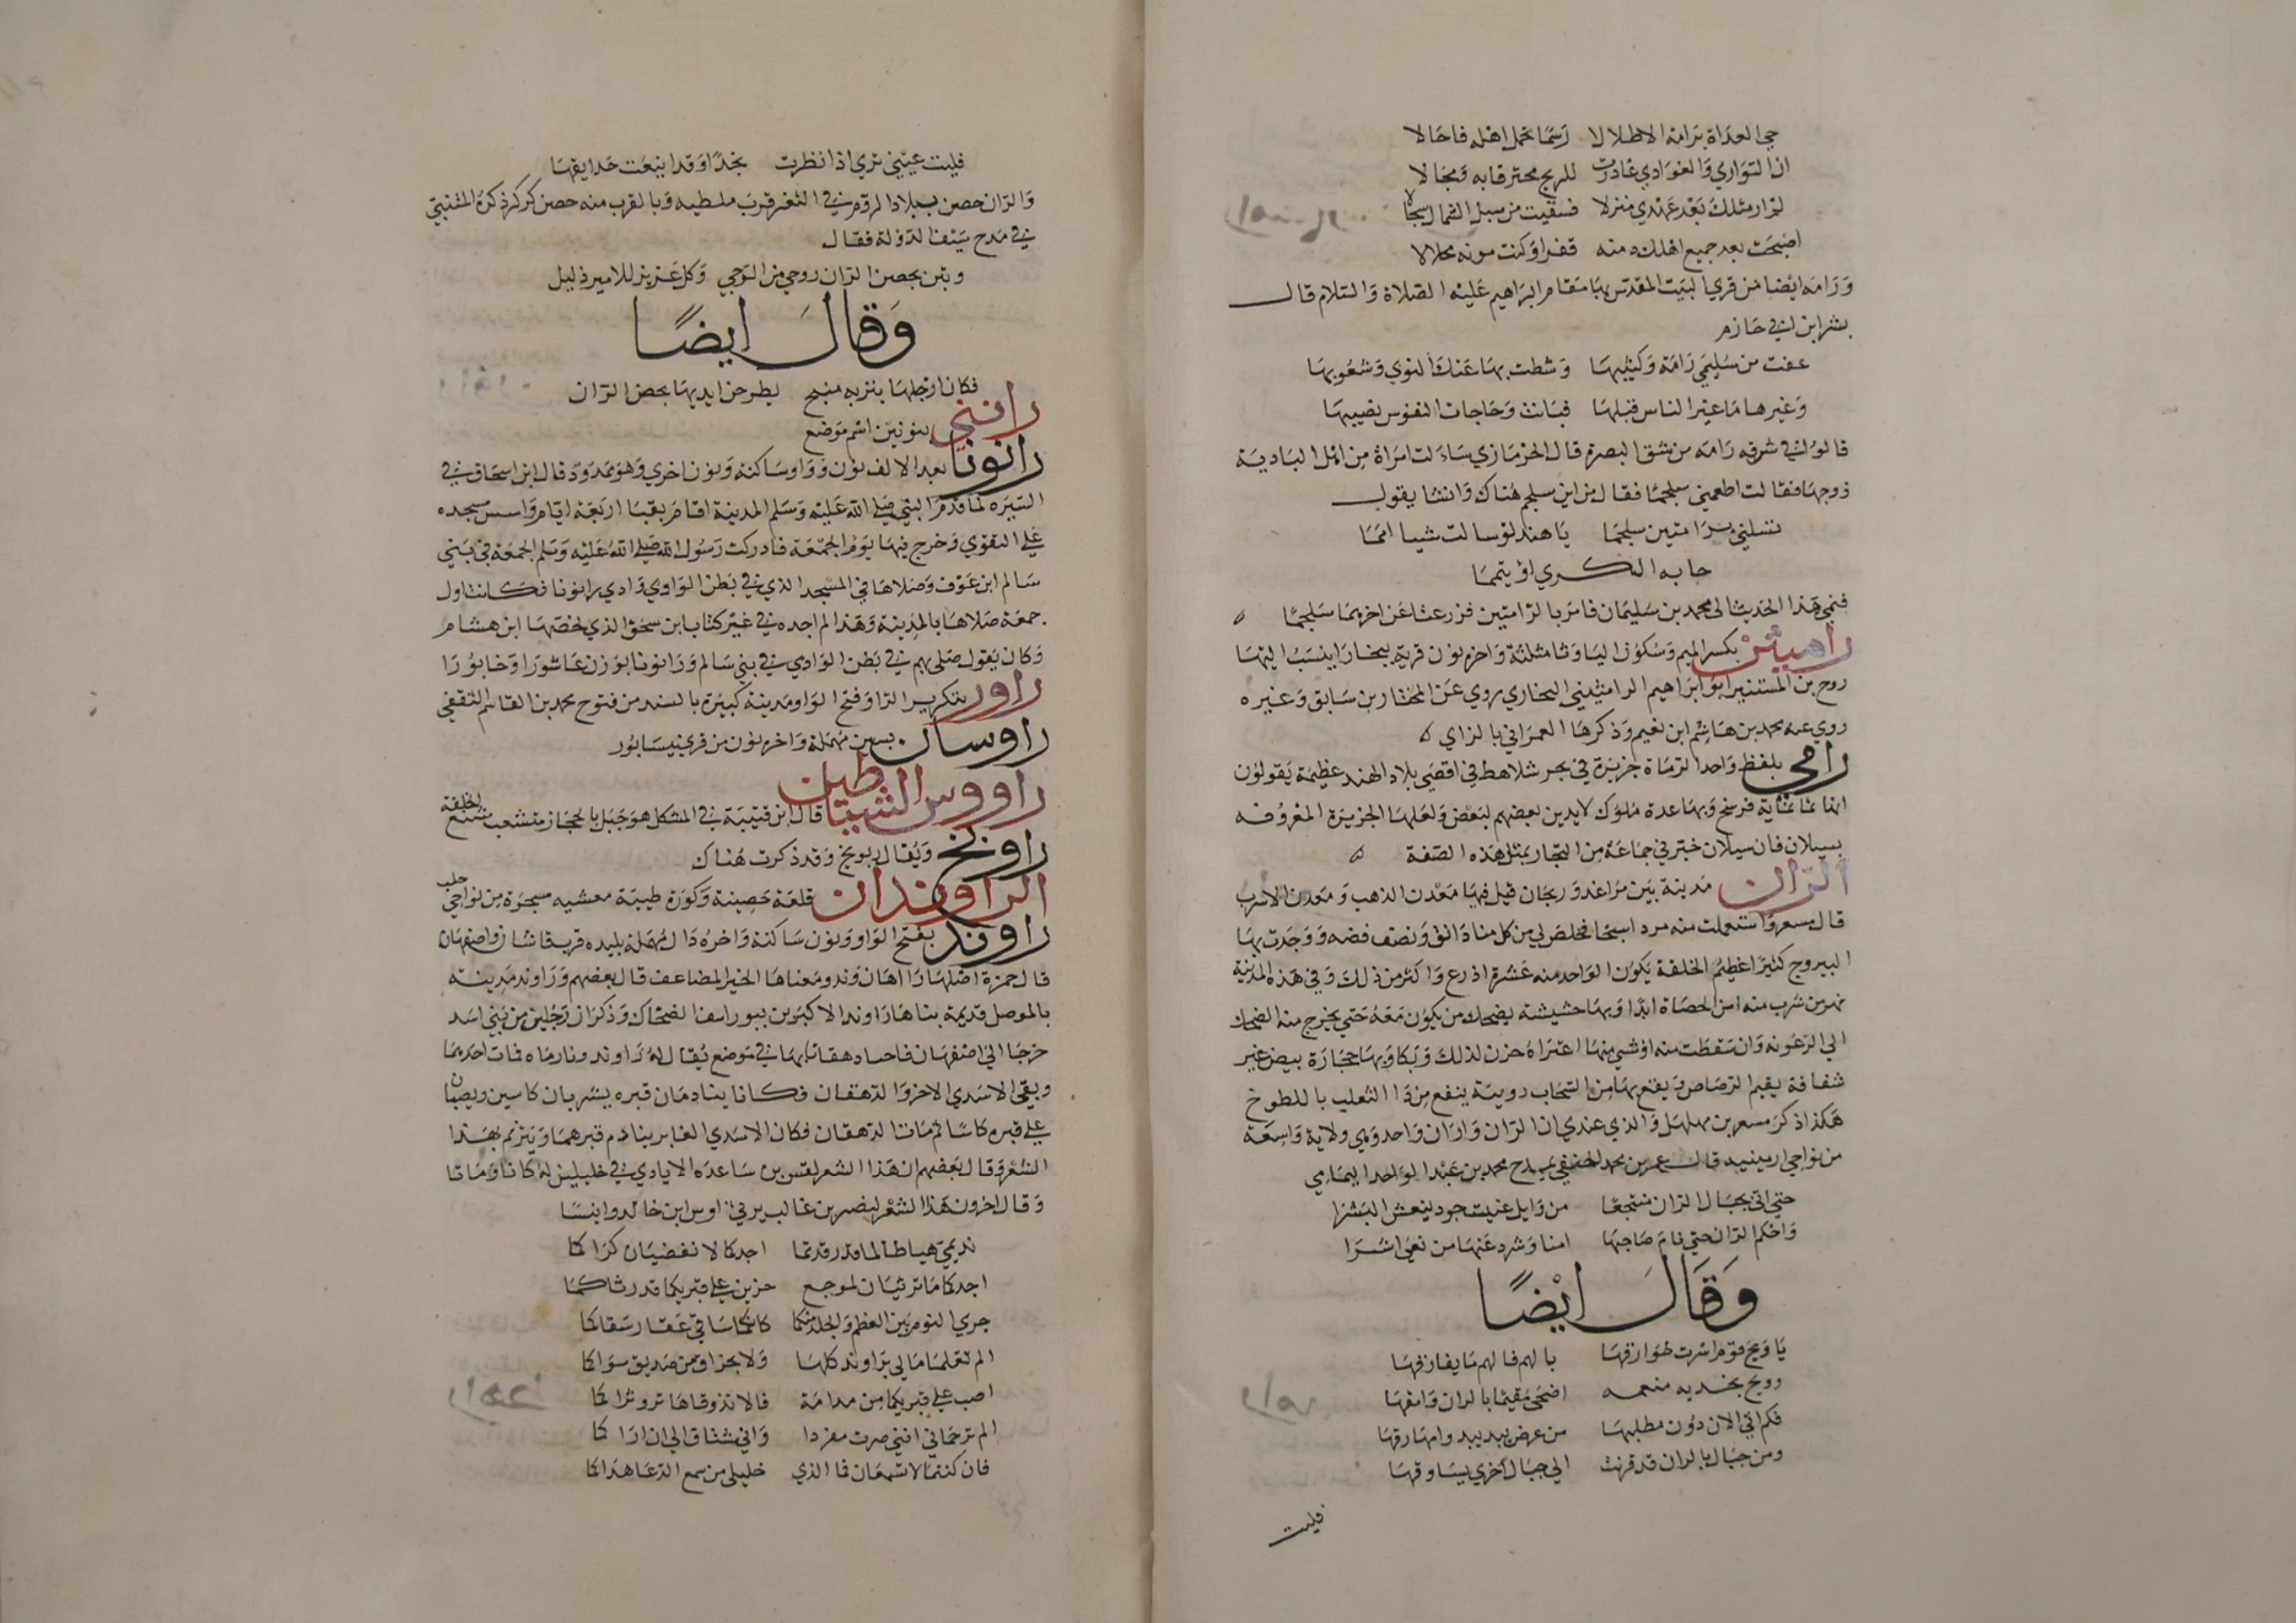 حي الغداة برامة الاطلالا رسما تحمل اهله فاحالا
ان السواري والغوادي غادرت للريح مخترقا به ومجالا
لم ار مثلك بعد عهدي منزلا فسقيت من سبل السماك سجالا
اصبحت بعد جميع اهلك دمنة قفرا وكنت مونه محلالا
ورامه ايضا من قري البيت المقدس بها مقام ابراهيم عليه الصلاة والسلام قال
بشر ابن ابي حازم
عفت من سليمي رامة وكثيبها وشطت بها عنك النوي وشعوبها
وغيرها ما غير الناس قبلها فبانت وحاجات النفوس نصيبها
قالوا في شرقيه رامه من شق البصرة قال الحزمازي ساءلت امراة من اهل البادية
زوجها فقالت اطعمني سلجما فقال من اين سلجم هناك وانشا يقول
تسلني برامتين سلجما يا هند لو سالت شيا امما
جا به الكري او يتمما
فنمي هذا الحديث الى محمد بن سليمان فامر بالرامتين فزرعتا عن اخرهما سلجما ٥
راميثن بكسر الميم وسكون اليا وثا مثلثة واخره نون قرية ببخارا ينسب اليها
روح بن المستنير ابو ابراهيم الراميثني البخاري روي عن المختار بن سابق وغيره
روي عنه محمد بن هاشم ابن نعيم وذكرها العمراني بالزاي ٥
رامي بلفظ واحد الرماة جزيرة في بحر شلاهط في اقصي بلاد الهند عظيمة يقولون
انها ثمانماية فرسخ وبها عدة ملوك لا يدين بعضهم لبعض ولعلها الجزيرة المعروفه
بسيلان فان سيلان خبرني جماعة من التجار بمثل هذه الصفة ٥
الران مدينة بين مراغه وزنجان قيل فيها معدن الذهب ومعدن الاسرب
قال مسعر واستعملت منه مرداسنجا فحلص لي من كل منا دانق ونصف فضه ووجدت بها
اليبروج كثيرا عظيم الخلقة يكون الواحد منه عشرة اذرع واكثر من ذلك وفي هذه المدينة
نهر من شرب منه امن الحصاة ابدا وبها حشيشة يضحك من يكون معه حتي يخرج منه الضحك
الي الرعونه وان سقطت منه او شي منها اعتراه حزن لذلك وبكا وبها حجارة بيض غير
شفافة يقيم الرصاص ويقع بها من السحاب دويبة ينفع من دا الثعلب باللطوخ
هكذا ذكر مسعر بن مهلهل والذي عندي ان الران واران واحد وهي ولاية واسعة
من نواحي ارمينيه قال عمر بن محمد الحنفي يمدح محمد بن عبد الواحد اليمامي
حتي اتى بجبال الران منتجعا من وايل غيث جود ينعش البشرا
واحكم الران حتي نام صاحبها امنا وشرد عنها من بغي اشرا
وقال ايضا
يا ويح قوم اشرت طوارقها بالهم فالهم ما يفارقها
وويح بخديه منعمه اضحى مقيما بالران وامقها
فكم اتي الان دون مطلبها من عرض بيد بيد وامهارقها
ومن جبال بالران قد قرنت الي جبال اخري يساوقها
فليت
فليت عيني تري اذا نظرت نجدا وقد اينعت حدايقها
والران حصن ببلاد الروم في الثغر قرب ملطيه وبالقرب منه حصن كركر ذكره المتنبي
في مدح سيف الدولة فقال
وبتن بحصن الران روحي من الوجي وكل عزيز للامير ذليل
وقال ايضا
فكان ارجلها بتربه منبج يطرحن ايديها بحصن الران
رانني بنونين اسم موضع
رانونا بعد الالف نون وواو ساكنة ونون اخري وهو ممدود قال ابن اسحاق في
السيره لما قدم النبي صلي الله عليه وسلم المدينة اقام بقبا اربعة ايام واسس مسجده
علي التقوي وخرج فيها يوم الجمعة فادركت رسول الله صلي الله عليه وسلم الجمعة في بني
سالم ابن عوف وصلاها في المسجد الذي في بطن الوادي وادي رانونا فكانت اول
جمعة صلاها بالمدينة وهذا لم اجده في غير كتاب ابن سحق الذي لخصها ابن هشام
وكان يقول صلى بهم في بطن الوادي في بني سالم ورانونا بوزن عاشورا وخابورا
راور بتكرير الرا وفتح الواو مدينة كبيرة بالسند من فتوح محمد بن القاسم الثقفي
راوسان بسين مهملة واخره نون من قري نيسابور
راووس الشياطين قال ابن قتيبة في المشكل هو جبل بالحجاز متشعب شنع الخلقة
راونخ ويقال ريونخ وقد ذكرت هناك
الراوندان قلعة حصينة وكورة طيبة معشبه مسجرة من نواحي حلب
راوند بفتح الواو ونون ساكنة واخره دال مهملة بليده قرب قاشان واصفهان
قال حمزة اصلها راهاوند ومعناها الخير المضاعف قال بعضهم وراوند مدينه
بالموصل قديمة بناها راوند الاكبر بن بيوراسف الضحاك وذكر ان رجلين من بني اسد
خرجا الي اصفهان فاخيا دهقانا بها في موضع يقال له راوند ونادماه فمات احدهما
وبقي الاسدي الاخر والدهقان فكانا ينادمان قبره يشربان كاسين ويصبان
علي قبره كاسا ثم مات الدهقان فكان الاسدي الغابر ينادم قبرهما ويترنم بهذا
الشعر وقال بعضهم ان هذا الشعر لقس بن ساعده الايادي في خليلين له كانا وماتا
وقال اخرون هذا الشعر لنصر بن غالب يرثي اوس ابن خالد وانيسا
نديمي هبا طالما قد رقدتما اجدكما لا تقضيان كراكما
اجدكما ما ترثيان لموجع حزين علي قبريكما قد رثاكما
جري النوم بين العظم والجلد منكما كانكما ساقي عقار سقاكما
الم تعلما ما لي براوند كلها ولا بخزاق من صديق سواكما
اصب علي قبريكما من مدامة فالا تذوقاها ترو ثراكما
الم ترحماني انني صرت مفردا واني مشتاق الي ان اراكما
فان كنتما لا تسمعان فما الذي خليلي من سمع الدعا هداكما